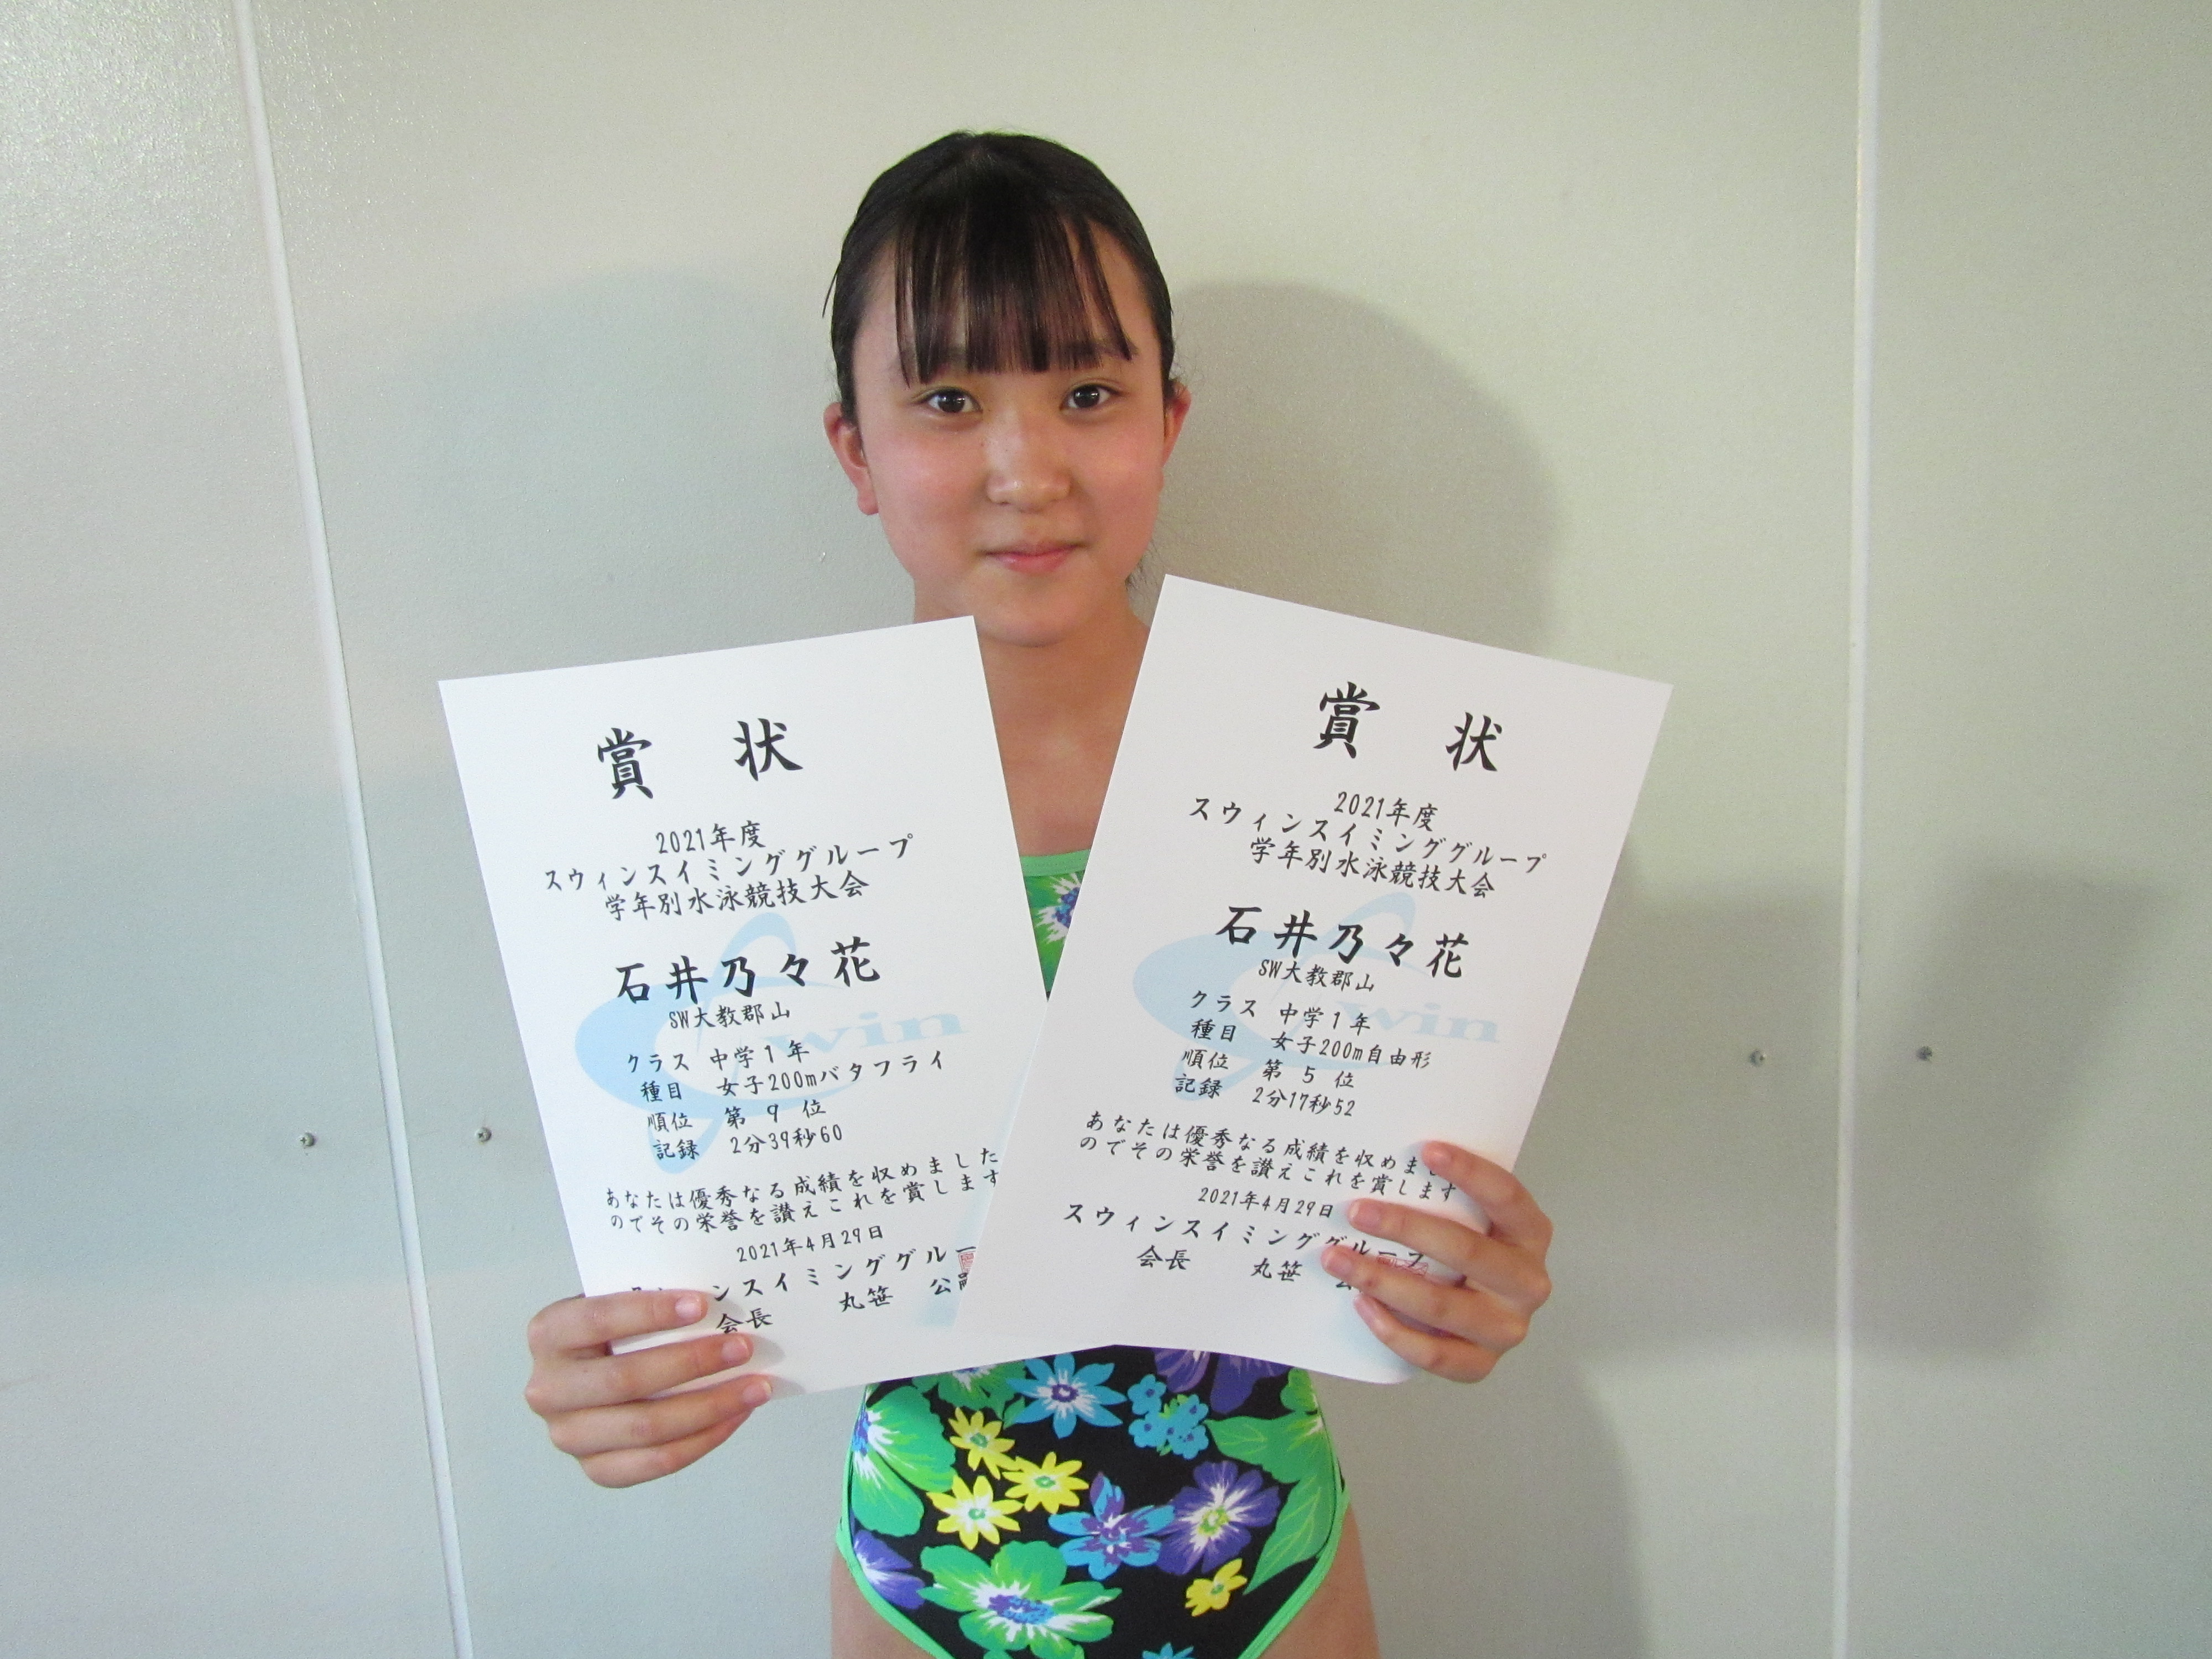 賞 状
2021年度
スウィンスイミンググループ
学年別水泳競技大会
石井乃々花
SW大教郡山
クラス 中学1年
種目 女子200mバタフライ
順位 第 9 位
記録 2分39秒60
あなたは優秀なる成績を収めました
のでその栄誉を讃えこれを賞します
2021年4月29日
ンスイミンググルー
会長 丸笹 公
Swin
賞 状
2021年度
スウィンスイミンググループ
学年別水泳競技大会
石井乃々花
SW大教郡山
クラス 中学1年
種目 女子200m自由形
順位 第 5 位
記録 2分17秒52
あなたは優秀なる成績を収めまし
のでその栄誉を讃えこれを賞します
2021年4月29日
スウィンスイミンググループ
会長 丸笹
Swin